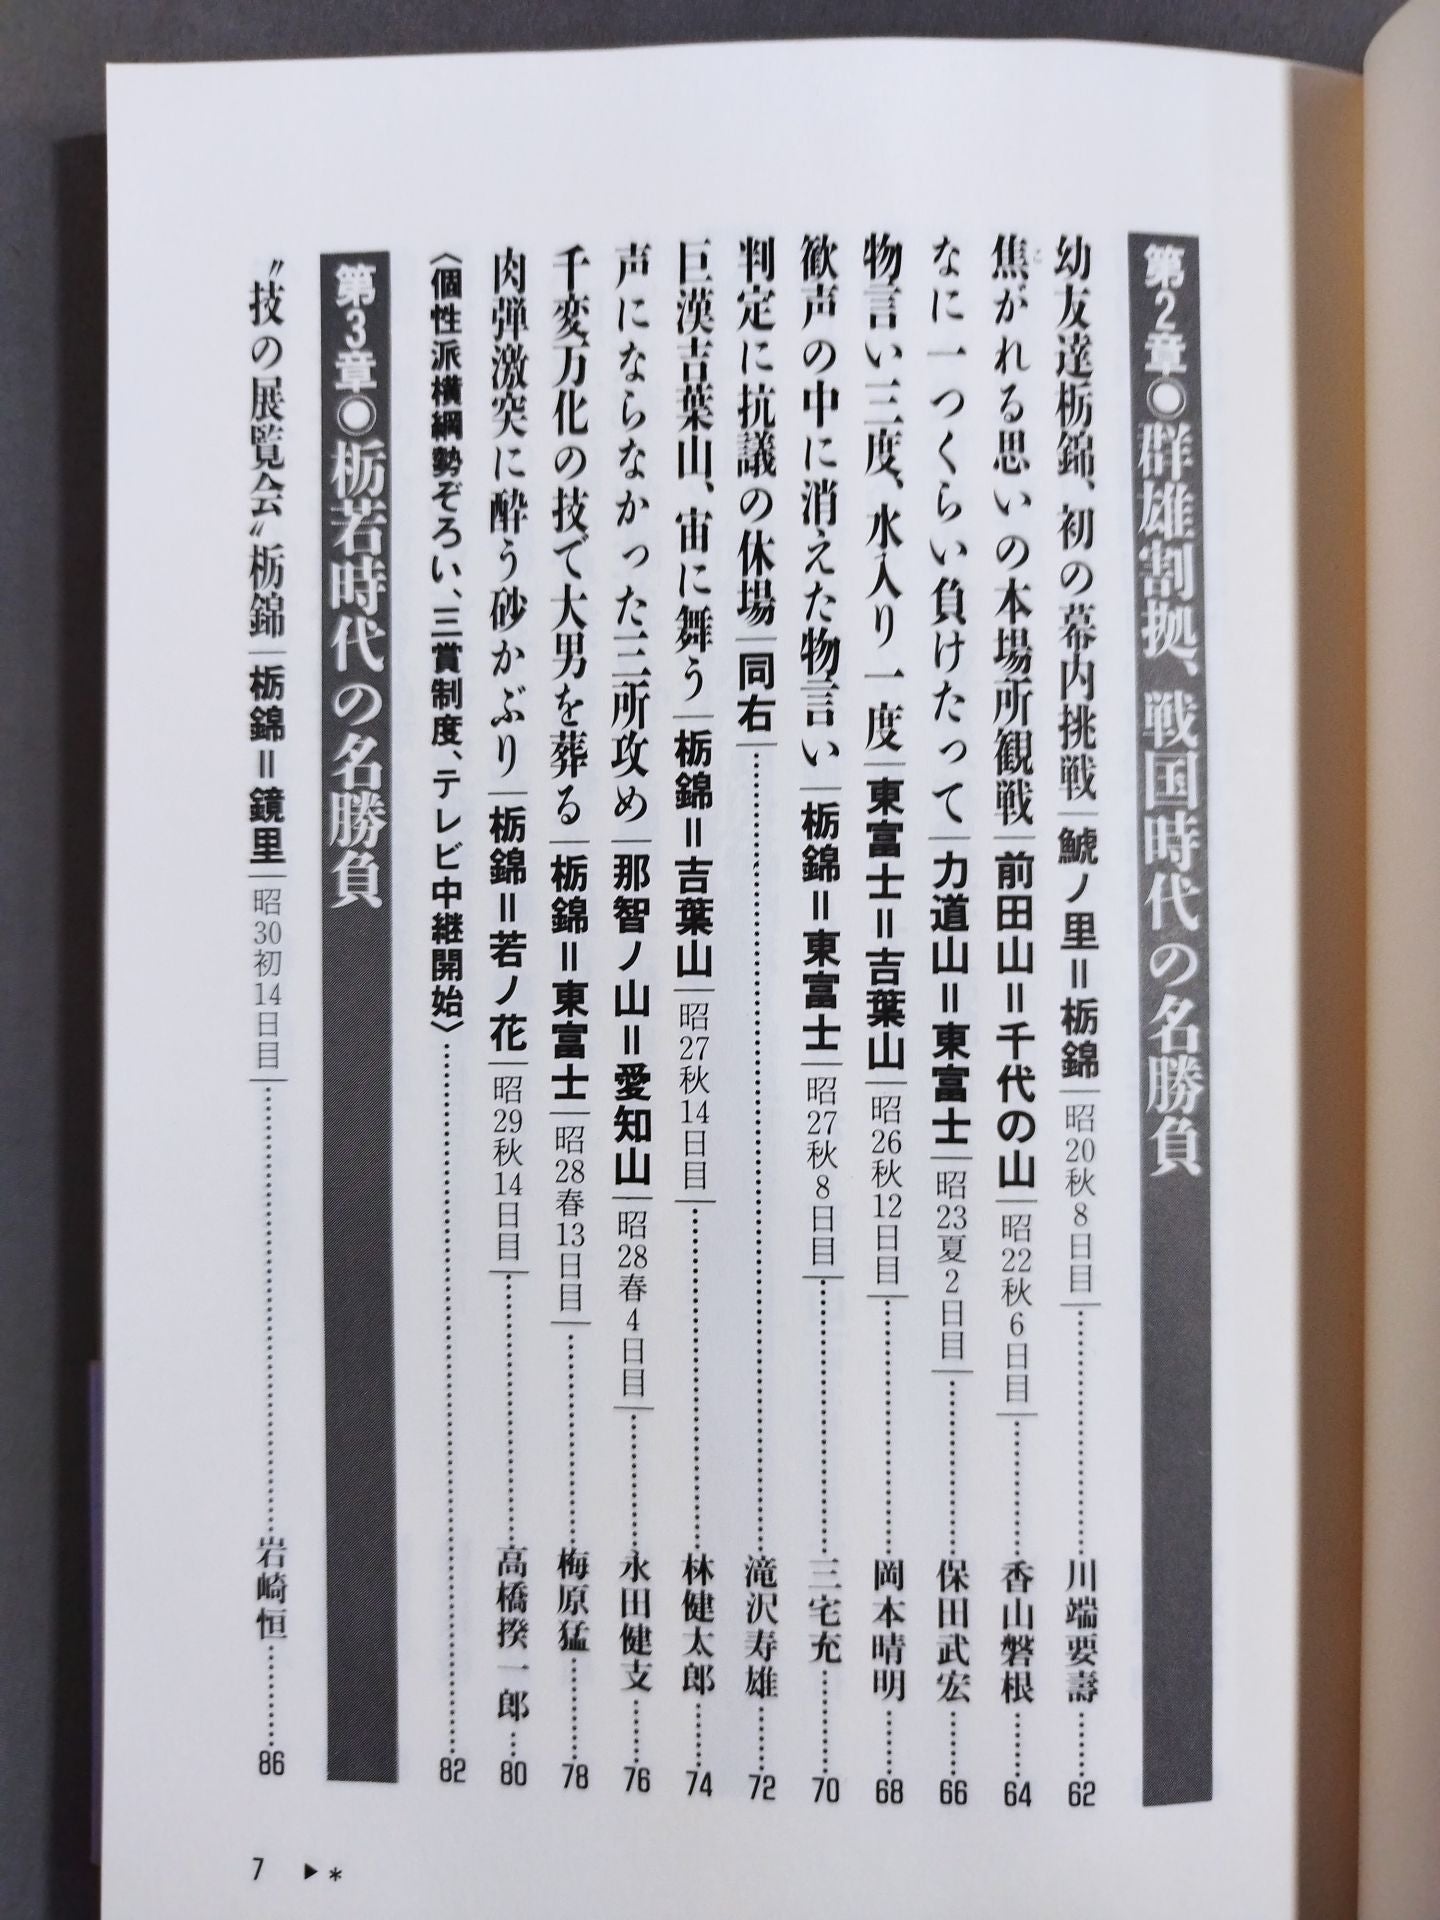 第2章◉群雄割拠、戦国時代の名勝負
幼友達栃錦、初の幕内挑戦｜鯱ノ里＝栃錦｜昭20秋8日目｜……川端要壽……62
焦がれる思いの本場所観戦｜前田山＝千代の山｜昭22秋6日目｜……香山磐根……64
なに一つくらい負けたって｜力道山＝東富士｜昭23夏2日目｜……保田武宏……66
物言い三度、水入り一度｜東富士＝吉葉山｜昭26秋12日目｜……岡本晴明……68
歓声の中に消えた物言い｜栃錦＝東富士｜昭27秋8日目｜……三宅充……70
判定に抗議の休場｜同右｜……滝沢寿雄……72
巨漢吉葉山、宙に舞う｜栃錦＝吉葉山｜昭27秋14日目｜……林健太郎……74
声にならなかった三所攻め｜那智ノ山＝愛知山｜昭28春4日目｜……永田健支……76
千変万化の技で大男を葬る｜栃錦＝東富士｜昭28春13日目｜……梅原猛……78
肉弾激突に酔う砂かぶり｜栃錦＝若ノ花｜昭29秋14日目｜……高橋揆一郎……80
〈個性派横綱勢ぞろい、三賞制度、テレビ中継開始〉……82
第3章◉栃若時代の名勝負
〝技の展覧会〟栃錦｜栃錦＝鏡里｜昭30初14日目｜……岩崎恒……86
7 ▶*